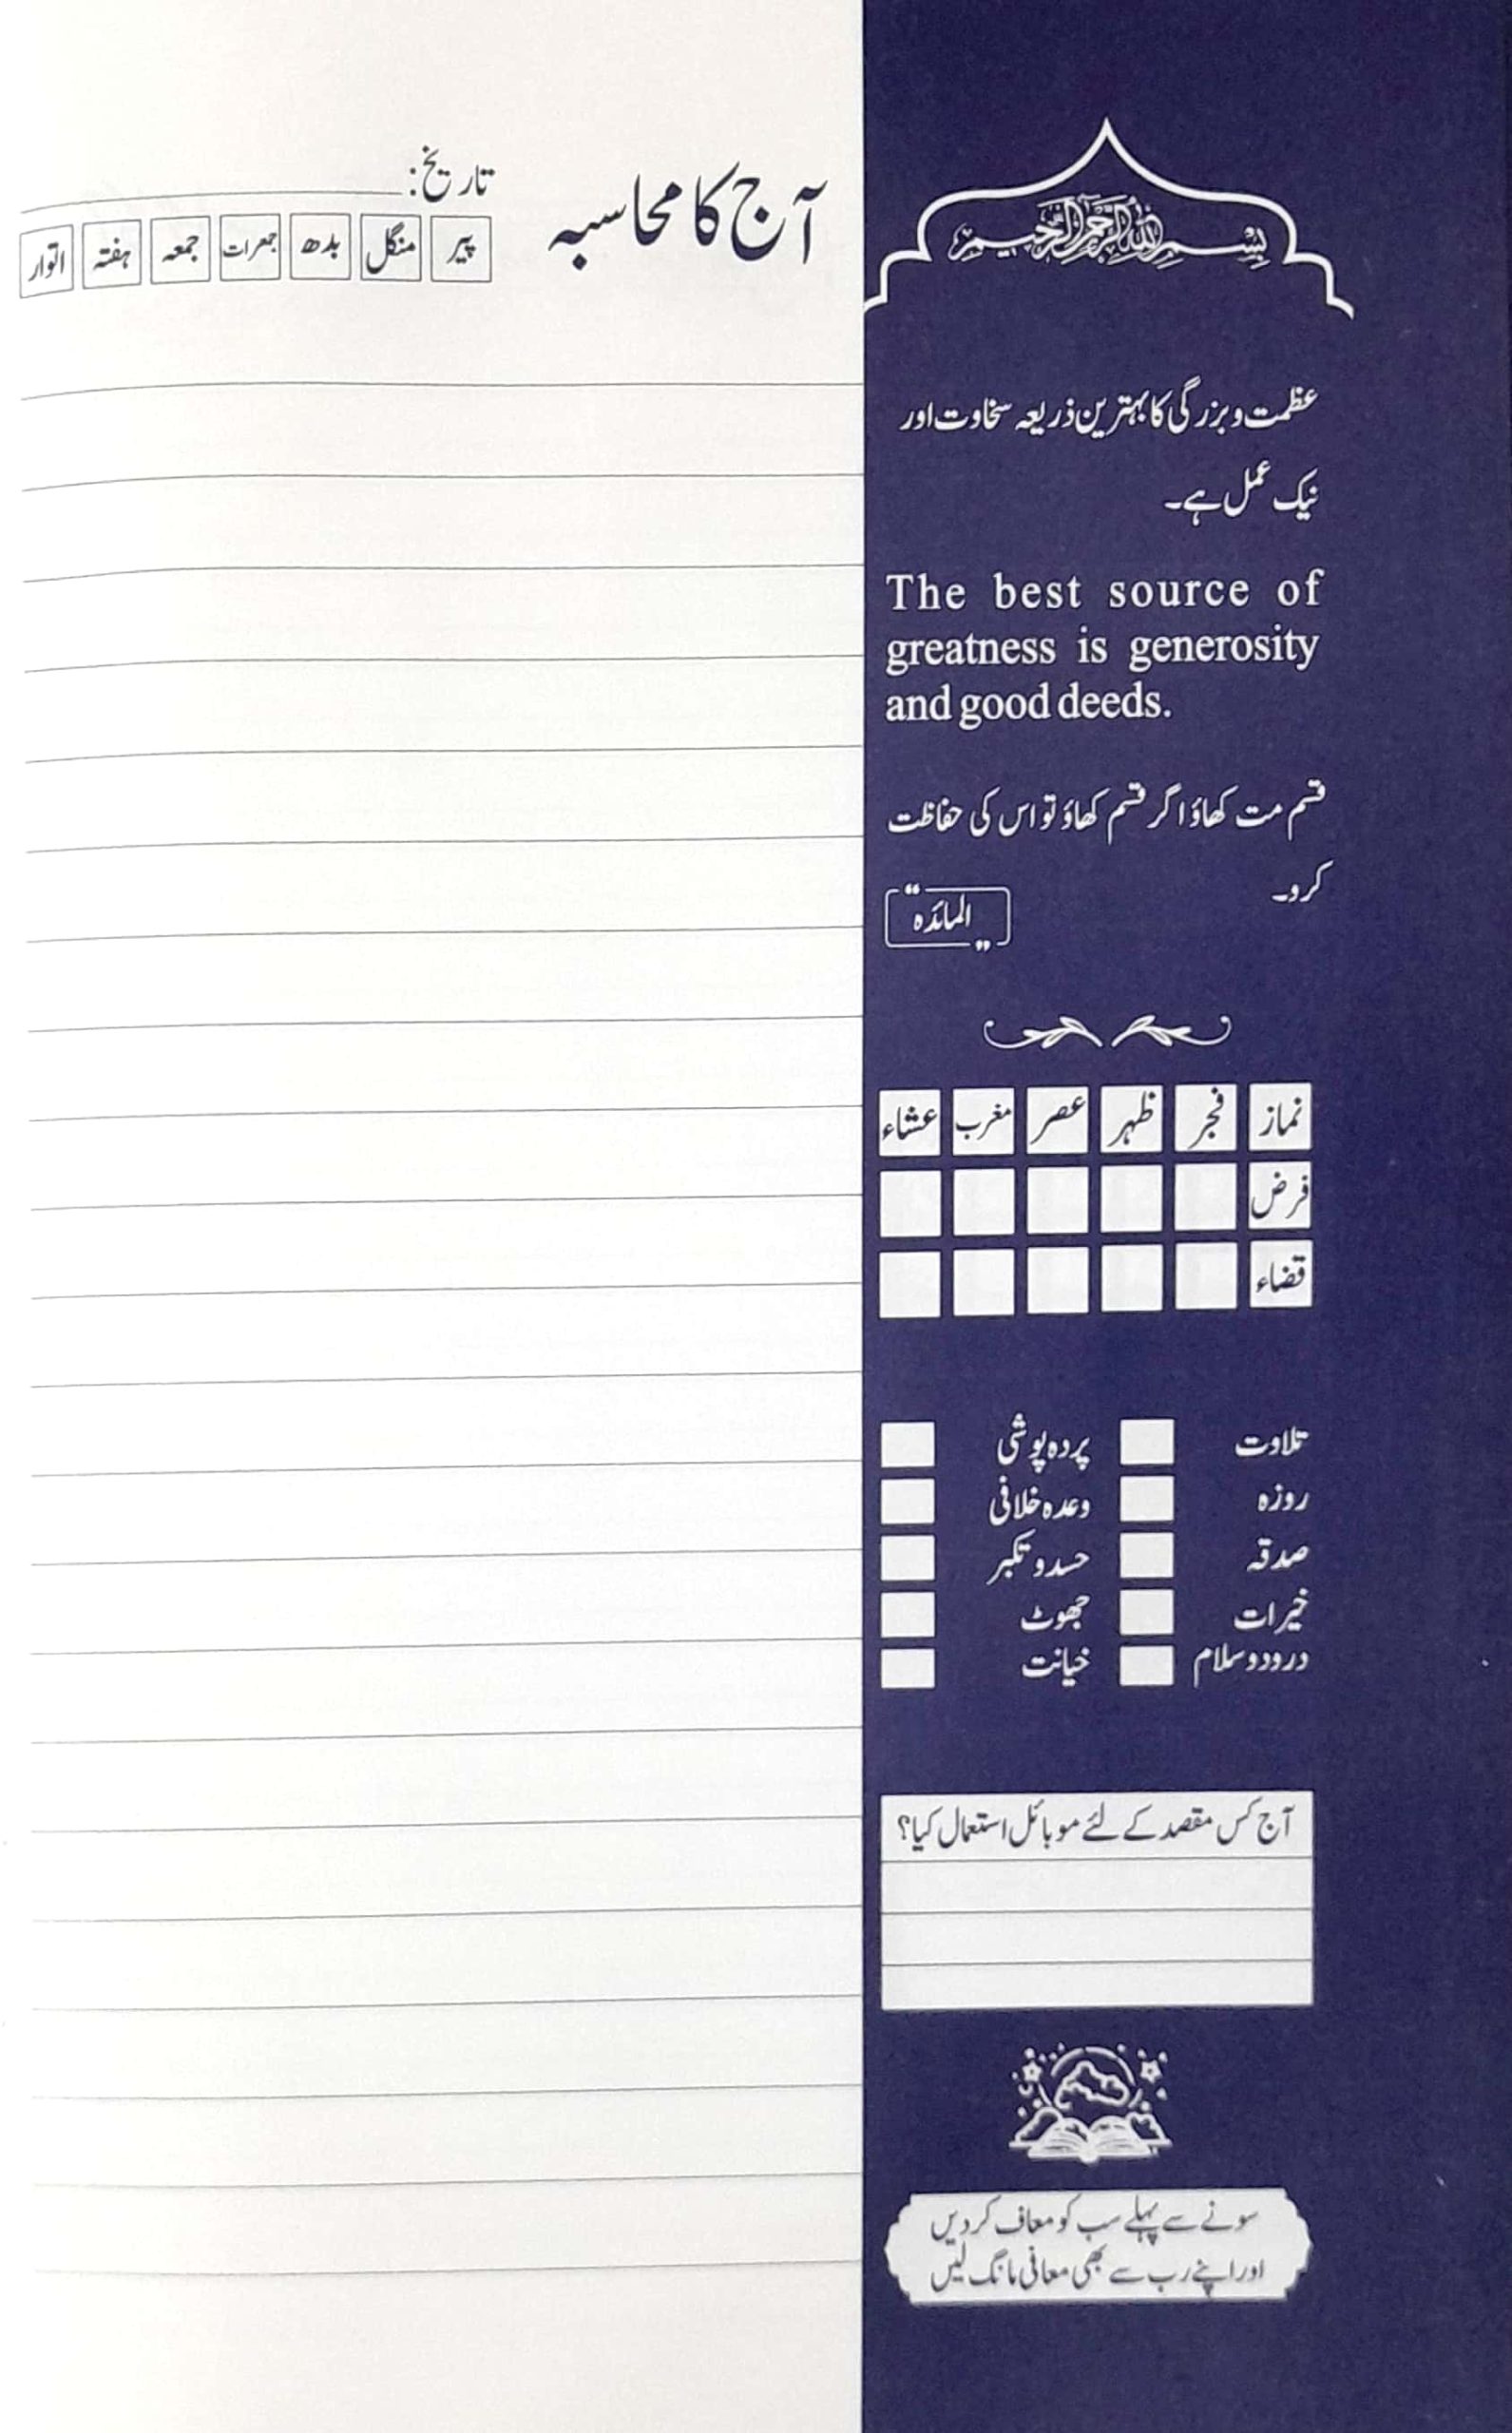 بِسْمِ اللهِ الرَّحْمٰنِ الرَّحِيْمِ
عظمت و بزرگی کا بہترین ذریعہ سخاوت اور
نیک عمل ہے۔
The best source of
greatness is generosity
and good deeds.
قسم مت کھاؤ اگر قسم کھاؤ تو اس کی حفاظت
کرو۔
المائدہ
نماز فجر ظہر عصر مغرب عشاء
فرض
قضاء
تلاوت پردہ پوشی
روزہ وعدہ خلافی
صدقہ حسد و تکبر
خیرات جھوٹ
درود و سلام خیانت
آج کس مقصد کے لئے موبائل استعمال کیا؟
سونے سے پہلے سب کو معاف کر دیں
اور اپنے رب سے بھی معافی مانگ لیں
آج کا محاسبہ
تاریخ:
پیر منگل بدھ جمعرات جمعہ ہفتہ اتوار